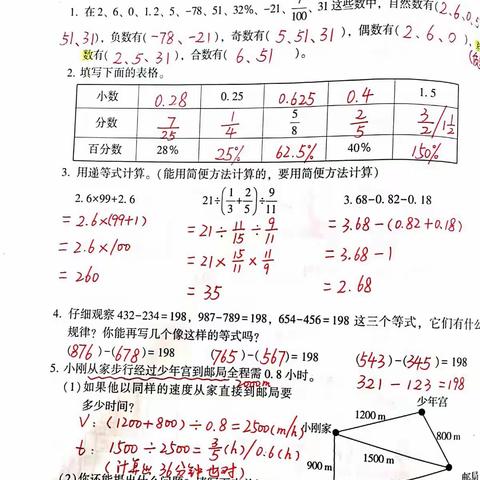 1. 在2、6、0、1.2、5、-78、51、32%、-21、7/100、31 这些数中，自然数有(2、6、0、5、
51、31)，负数有(-78、-21)，奇数有(5、51、31)，偶数有(2、6、0)，
数有(2、5、31)，合数有(6、51)。
2. 填写下面的表格。
小数 0.28 0.25 0.625 0.4 1.5
分数 7/25 1/4 5/8 2/5 3/2/1 1/2
百分数 28% 25% 62.5% 40% 150%
3. 用递等式计算。(能用简便方法计算的，要用简便方法计算)
2.6×99+2.6 21÷(1/3+2/5)÷9/11 3.68-0.82-0.18
=2.6×(99+1) =21÷11/15÷9/11 =3.68-(0.82+0.18)
=2.6×100 =21×15/11×11/9 =3.68-1
=260 =35 =2.68
4. 仔细观察 432-234=198，987-789=198，654-456=198 这三个等式，它们有什
规律？你能再写几个像这样的等式吗？
(876)-(678)=198 (765)-(567)=198 (543)-(345)=198
321-123=198
5. 小刚从家步行经过少年宫到邮局全程需 0.8 小时。
2000m
(1)如果他以同样的速度从家直接到邮局要
多少时间？
V：(1200+800)÷0.8=2500(m/h)
t：1500÷2500=3/5(h)/0.6(h)
(计算出36分钟也对)
少年宫
1200 m
小刚家
800 m
1500 m
900 m
邮局